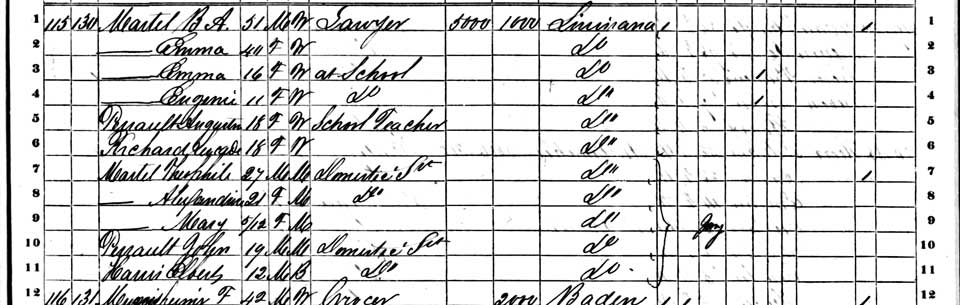 1 115 130 Martel B A. 51 M W Lawyer 5000 1000 Louisiana 1 1 1
2 —— Emma 40 F W Do 2
3 —— Emma 16 F W at School Do 1 3
4 —— Eugenie 11 F W Do Do 1 4
5 18 F W School Teacher Do 5
6 Richard 18 F W Do 6
7 Martel Theophile 27 M M Domestic Do 1 7
8 —— 21 F M Do Do 8
9 —— Mary 5/12 F M Do 9
10 John 19 M M Domestic Do 10
11 Harris 12 M B Do Do 11
12 116 131 F 42 M W Grocer 2000 Baden 12